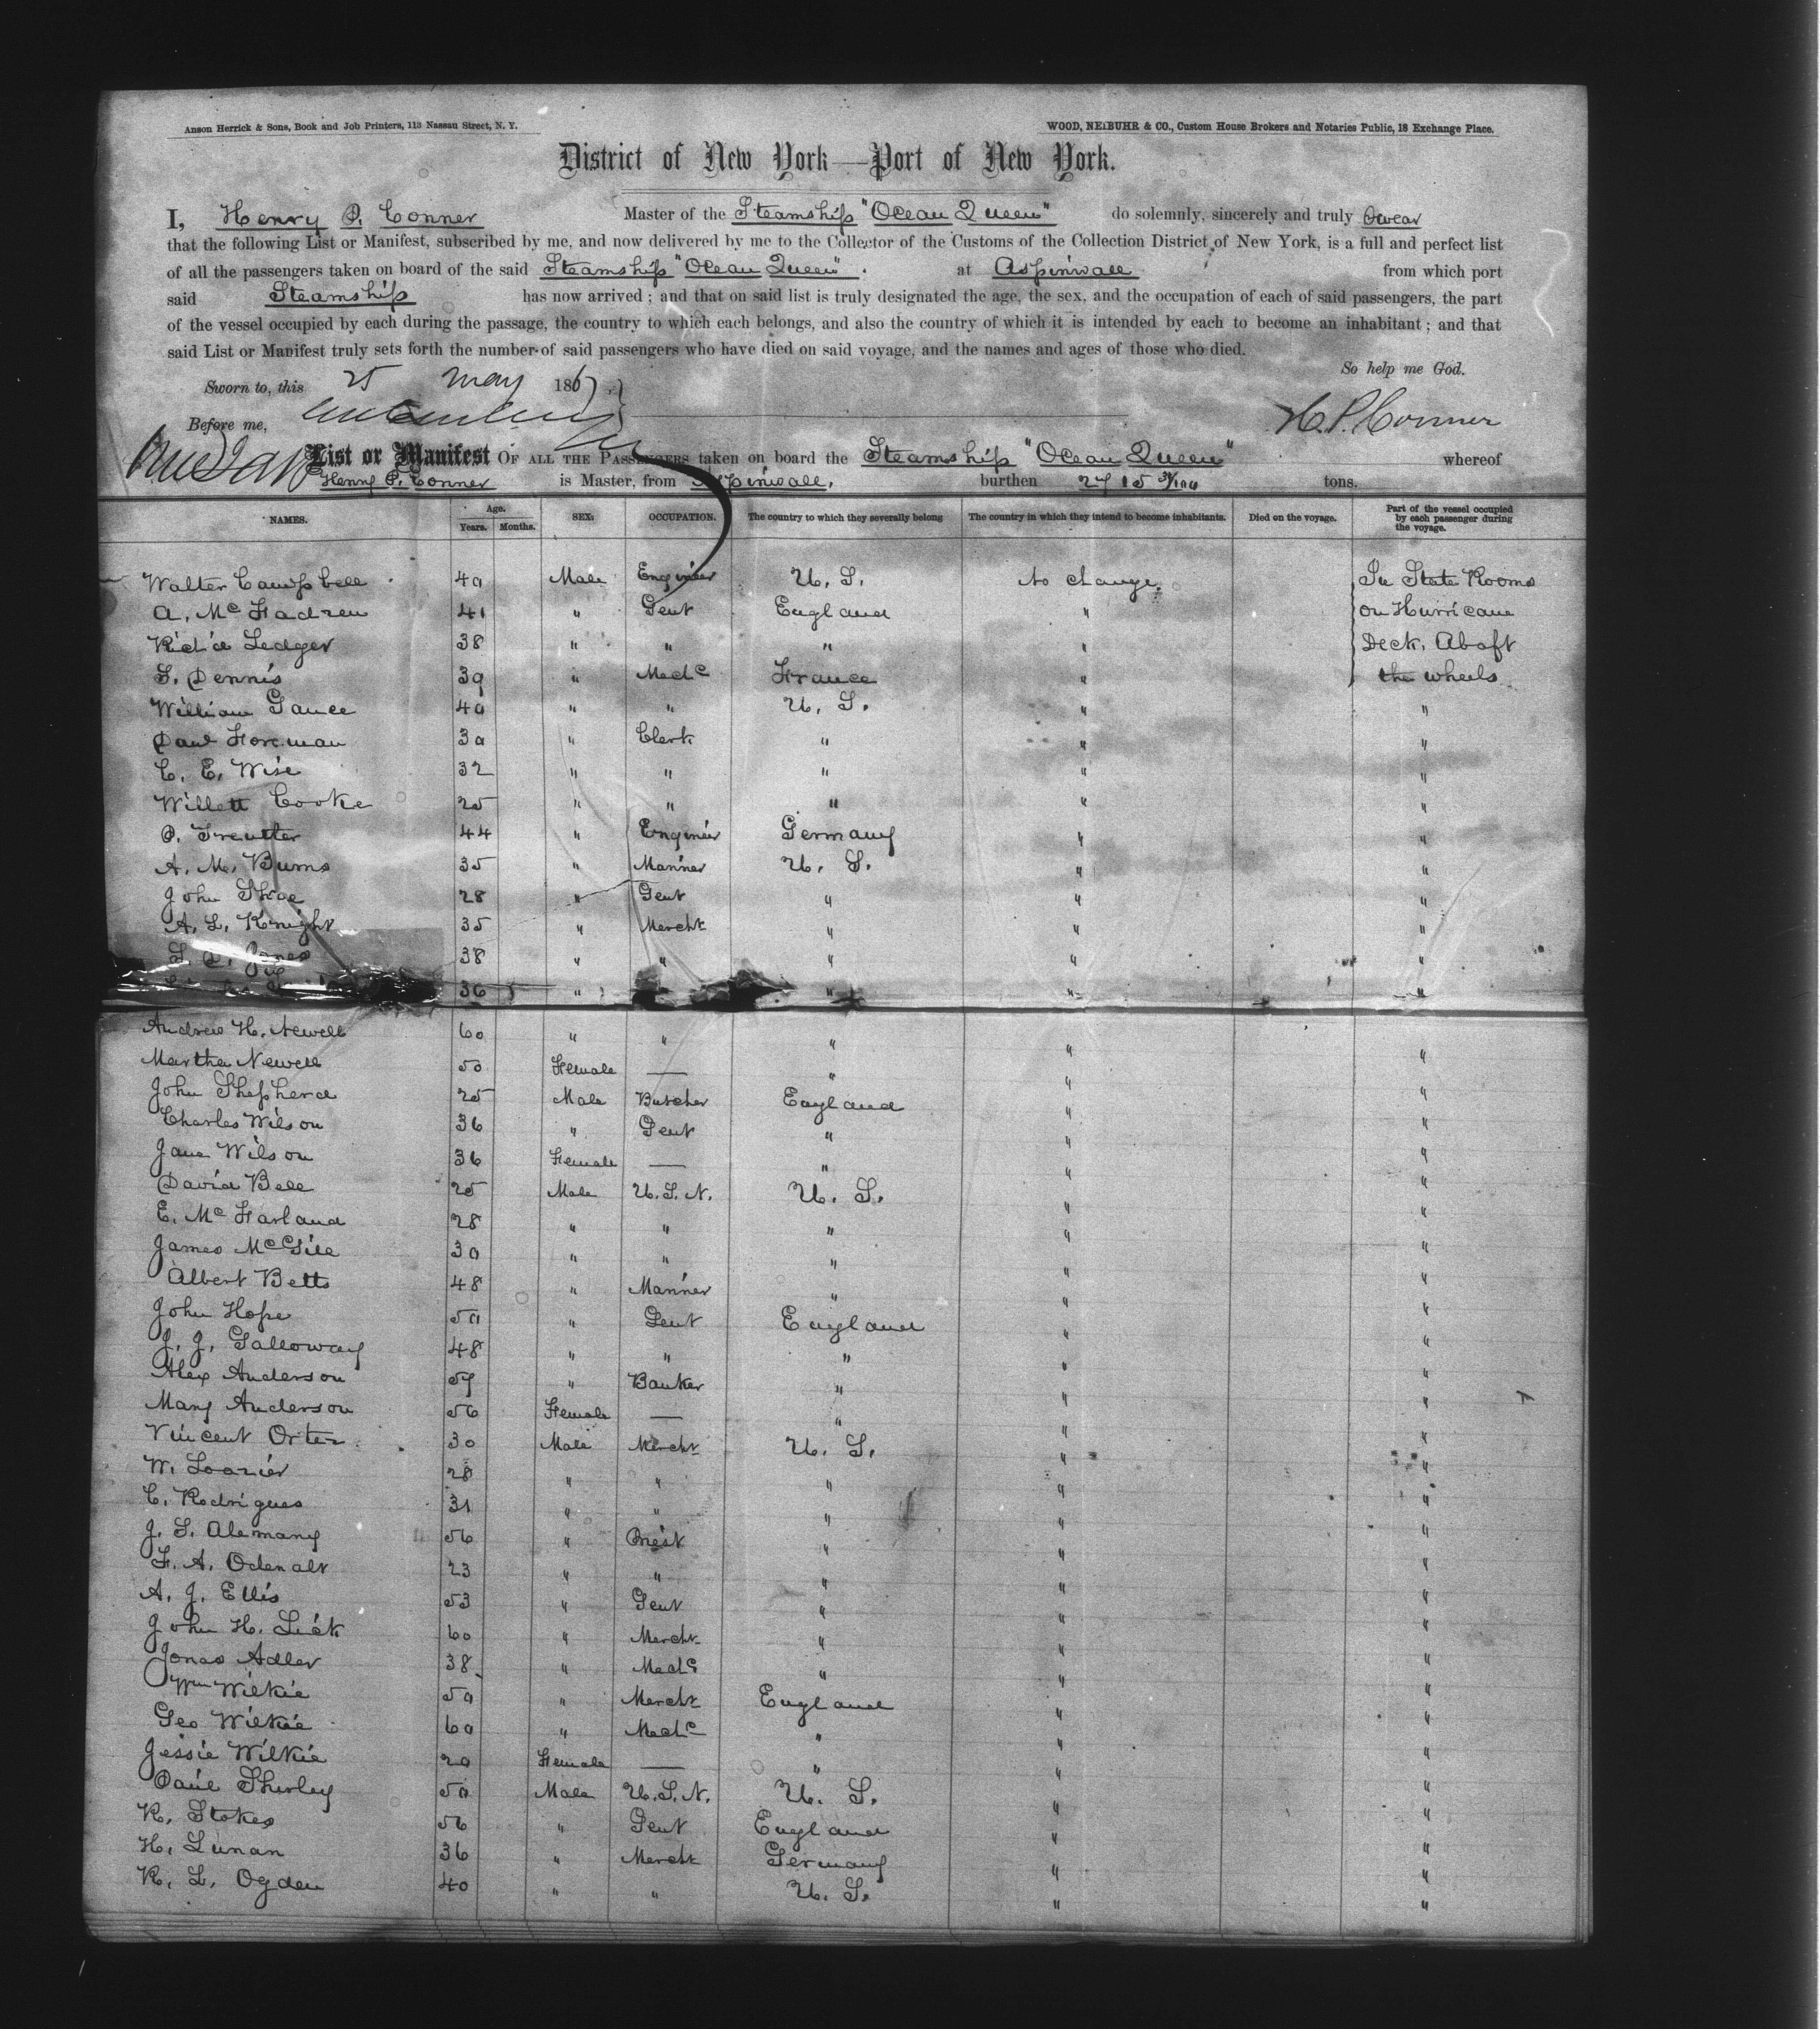 Anson Herrick & Sons, Book and Job Printers, 113 Nassau Street, N. Y. WOOD, NEIBUHR & CO., Custom House Brokers and Notaries Public, 18 Exchange Place.
District of New York—Port of New York.
I, Henry P. Conner Master of the Steamship "Ocean Queen" do solemnly, sincerely and truly Swear
that the following List or Manifest, subscribed by me, and now delivered by me to the Collector of the Customs of the Collection District of New York, is a full and perfect list
of all the passengers taken on board of the said Steamship "Ocean Queen". at Aspinwall from which port
said Steamship has now arrived; and that on said list is truly designated the age, the sex, and the occupation of each of said passengers, the part
of the vessel occupied by each during the passage, the country to which each belongs, and also the country of which it is intended by each to become an inhabitant; and that
said List or Manifest truly sets forth the number of said passengers who have died on said voyage, and the names and ages of those who died.
So help me God.
Sworn to, this 25 May 1867.
Before me, H. P. Conner
List or Manifest OF ALL THE PASSENGERS taken on board the Steamship "Ocean Queen" whereof
Henry P. Conner is Master, from Aspinwall, burthen tons.
NAMES. Age. Years. Months. SEX. OCCUPATION. The country to which they severally belong The country in which they intend to become inhabitants. Died on the voyage. Part of the vessel occupied by each passenger during the voyage.
Walter Campbell 40 Male Engineer U. S. No change. In State Rooms
A. McFadren 41 " Gent England " on Hurricane
Richd Ledger 38 " " " " Deck. Abaft
S. Dennis 39 " Mechc France " the wheels
William Gance 40 " " U. S. " "
Danl Foreman 30 " Clerk " " "
C. E. Wise 32 " " " " "
Willett Cooke 25 " " " " "
P. Treutter 44 " Engineer Germany " "
A. M. Burns 35 " Mariner U. S. " "
John Shae 28 " Gent " " "
A. L. Knight 35 " Mercht " " "
S. P. Jones 38 " " " " "
36 " " " "
Andrew H. Newell 60 " " " " "
Martha Newell 50 Female — " " "
John Shepherd 25 Male Butcher England " "
Charles Wilson 36 " Gent " " "
Jane Wilson 36 Female — " " "
David Bell 25 Male U.S.N. U. S. " "
E. McFarland 28 " " " " "
James McGill 30 " " " " "
Albert Betts 48 " Mariner " " "
John Hope 50 " Gent England " "
J. J. Galloway 48 " " " " "
Alex Anderson 57 " Banker " " "
Mary Anderson 56 Female — " " "
Vincent Ortez 30 Male Mercht U. S. " "
W. Loozier 28 " " " " "
C. Rodrigues 31 " " " " "
J. S. Alemany 56 " Priest " " "
F. A. Odenalt 23 " " " " "
A. J. Ellis 53 " Gent " " "
John H. Lick 60 " Mercht " " "
Jonas Adler 38 " Mechc " " "
Wm Wilkie 50 " Mercht England " "
Geo Wilkie 60 " Mechc " " "
Jessie Wilkie 20 Female — " " "
Paul Shirley 50 Male U.S.N. U. S. " "
R. Stokes 56 " Gent England " "
H. Lunan 36 " Mercht Germany " "
R. L. Ogden 40 " " U. S. " "